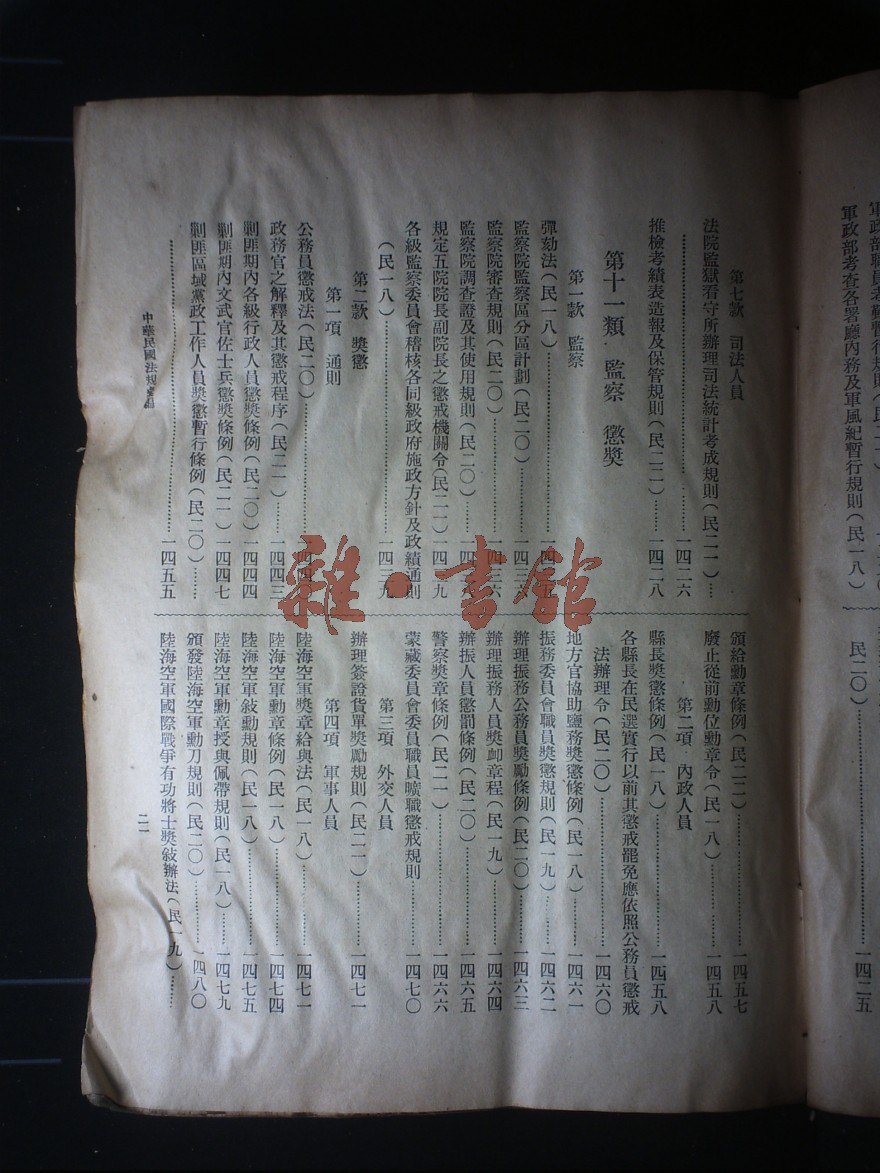 軍政部考查各署廳內務及軍風紀暫行規則(民一八)
民二〇)……一四二五
第七款 司法人員
法院監獄看守所辦理司法統計考成規則(民二一)……
……一四二六
推檢考績表造報及保管規則(民二二)……一四二八
第十一類 監察 懲獎
第一款 監察
彈劾法(民一八)
監察院監察區分區計劃(民二〇)……一四三六
監察院審查規則(民二〇)……一四三六
監察院調查證及其使用規則(民二〇)
規定五院院長副院長之懲戒機關令(民二一)一四三九
各級監察委員會稽核各同級政府施政方針及政績通則
(民一八)……一四三九
第二款 獎懲
第一項 通則
公務員懲戒法(民二〇)
政務官之解釋及其懲戒程序(民二一)……一四四三
剿匪期內各級行政人員懲獎條例(民二〇)一四四四
剿匪期內文武官佐士兵懲獎條例(民二一)一四四七
剿匪區域黨政工作人員獎懲暫行條例(民二〇)……
……一四五五
頒給勳章條例(民二二)……一四五七
廢止從前勳位勳章令(民一八)……一四五八
第二項 內政人員
縣長獎懲條例(民一八)……一四五八
各縣長在民選實行以前其懲戒罷免應依照公務員懲戒
法辦理令(民二〇)……一四六〇
地方官協助鹽務獎懲條例(民一八)……一四六一
振務委員會職員獎懲規則(民一九)……一四六二
辦理振務公務員獎勵條例(民二〇)……一四六三
辦理振務人員獎卹章程(民一九)……一四六四
辦振人員懲罰條例(民二〇)……一四六五
警察獎章條例(民二一)……一四六六
蒙藏委員會委員職員曠職懲戒規則……一四七〇
第三項 外交人員
辦理簽證貨單獎勵規則(民二一)……一四七一
第四項 軍事人員
陸海空軍獎章給與法(民一八)……一四七一
陸海空軍勳章條例(民一八)……一四七四
陸海空軍敍勳規則(民一八)……一四七五
陸海空軍勳章授與佩帶規則(民一八)……一四七九
頒發陸海空軍勳刀規則(民二〇)……一四八〇
陸海空軍國際戰爭有功將士獎敍辦法(民一九)……
中華民國法規彙編
二一
雜·書館